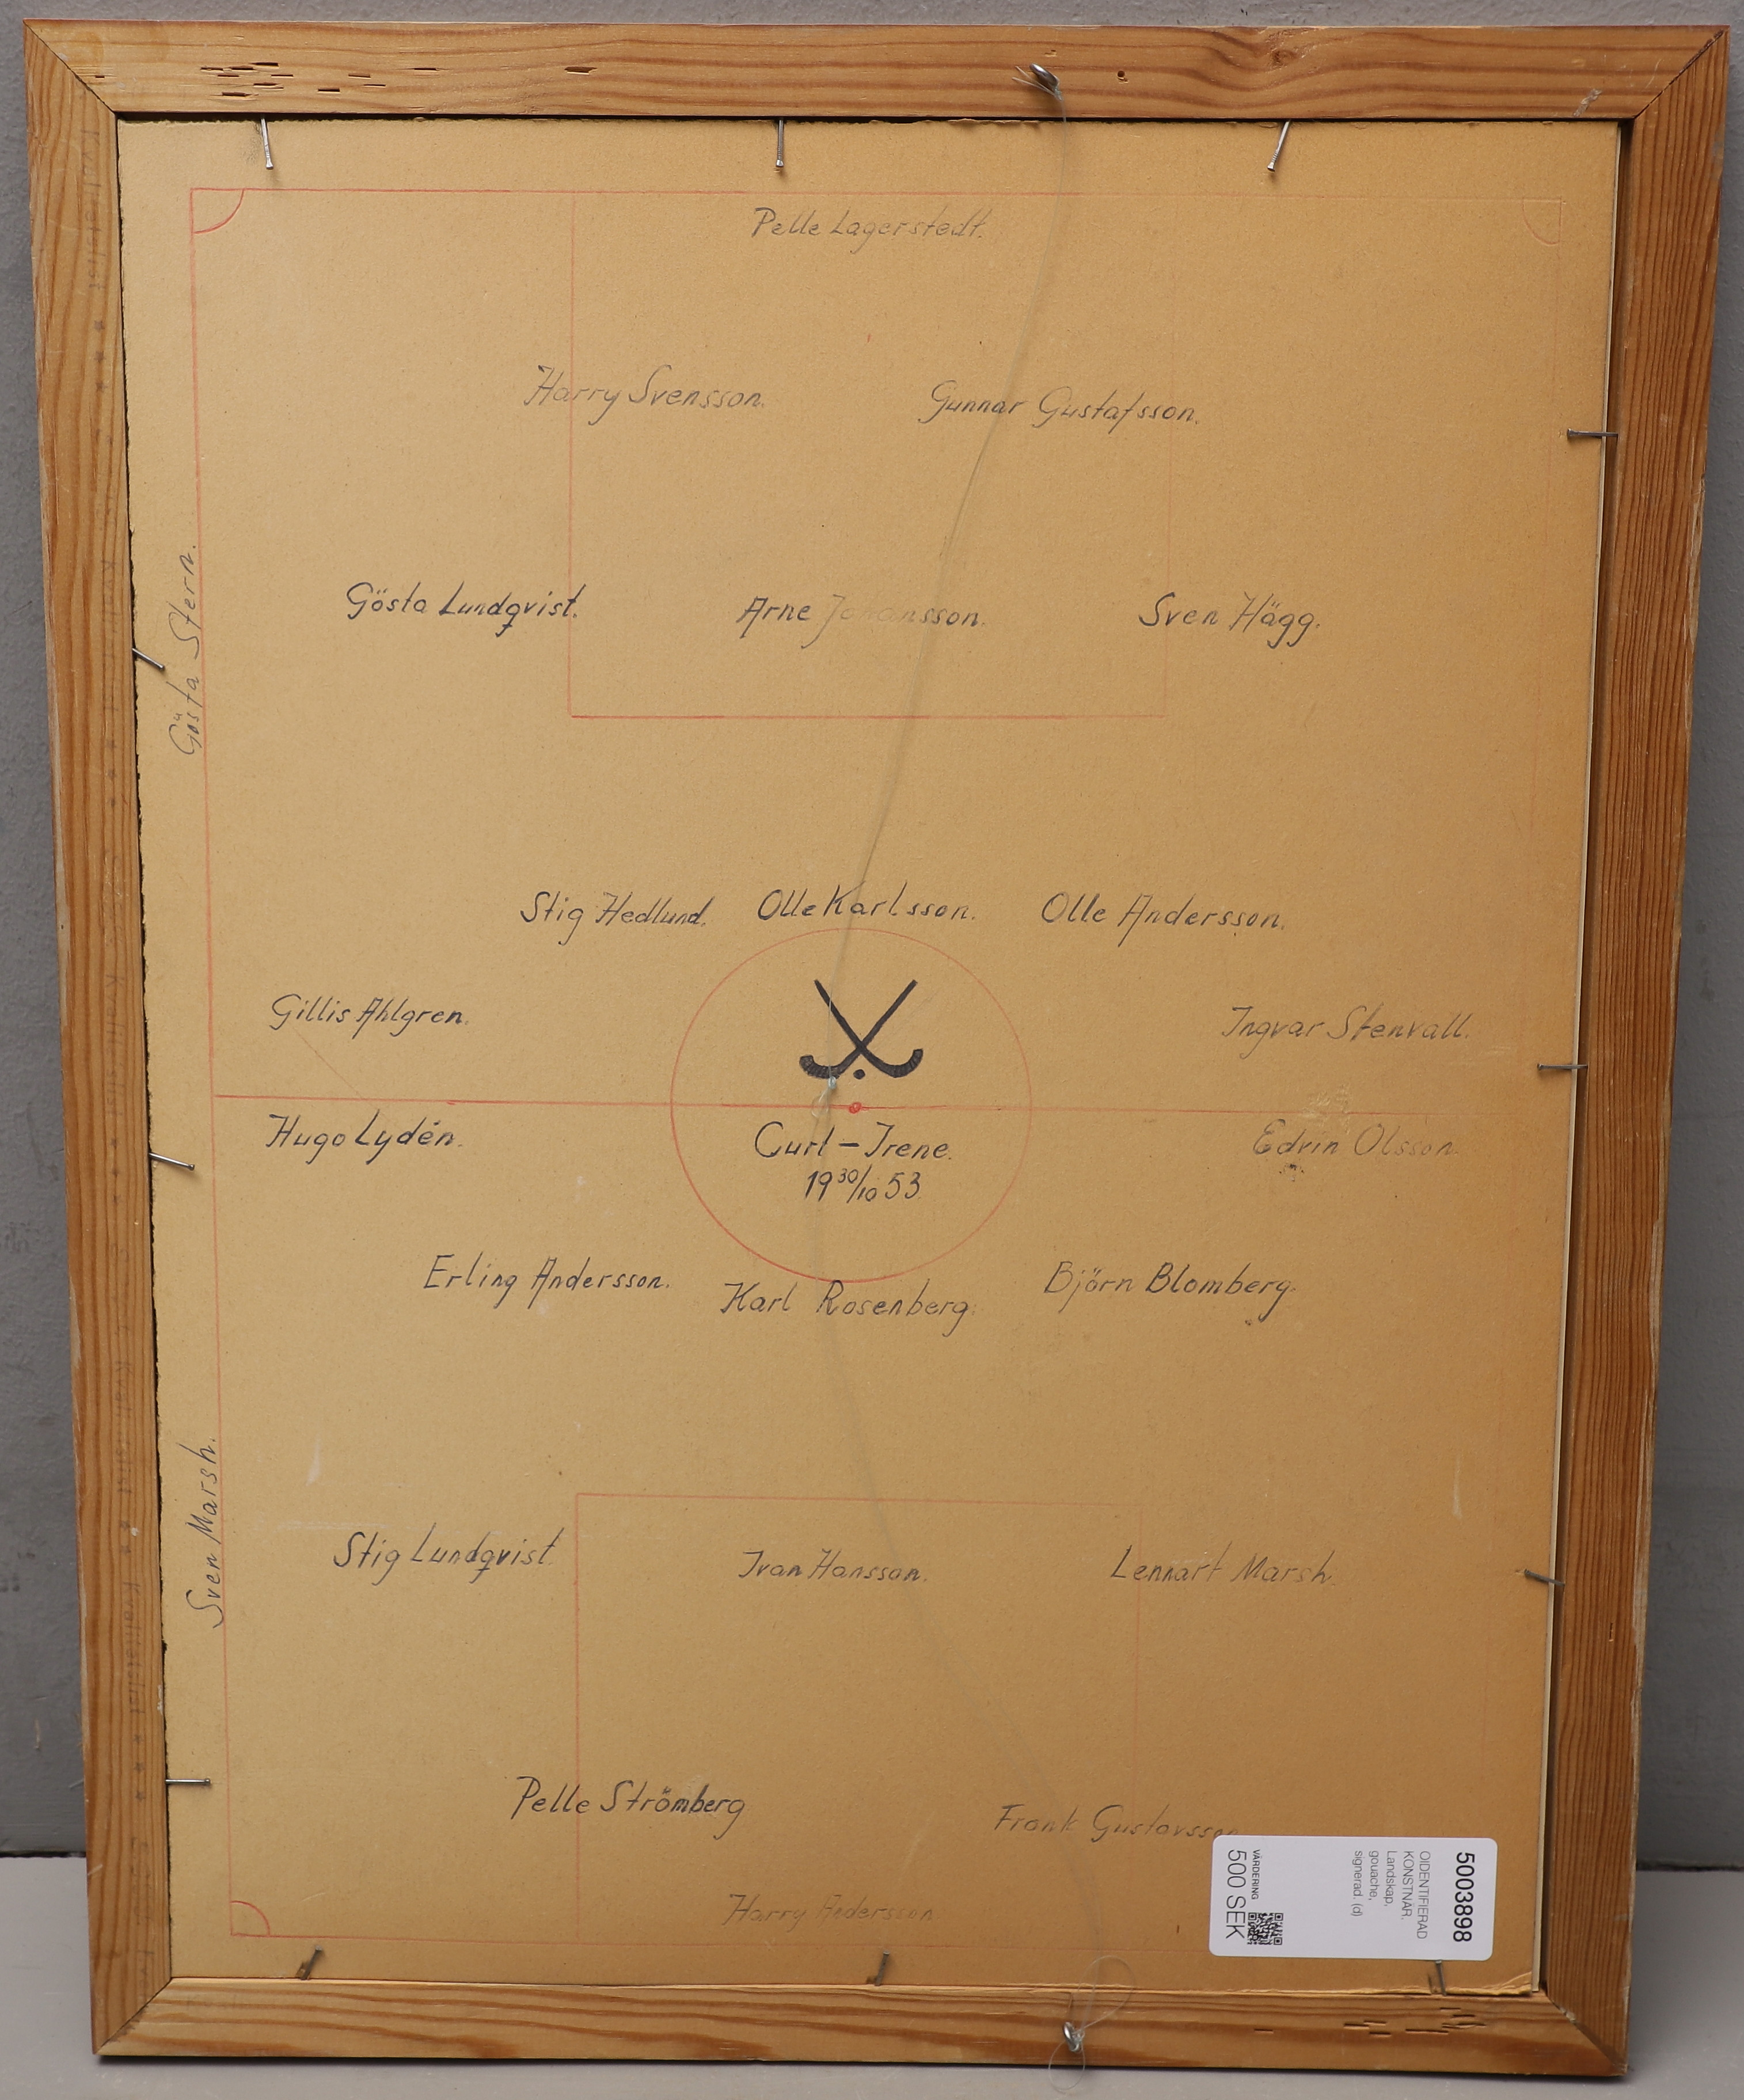 Pelle Lagerstedt.
Harry Svensson.
Gunnar Gustafsson.
Gösta Lundqvist.
Arne Johansson.
Sven Hägg.
Gösta Stern.
Stig Hedlund.
Olle Karlsson.
Olle Andersson.
Gillis Ahlgren.
Ingvar Stenvall.
Hugo Lydén.
Curt – Irene.
19 30/10 53.
Edvin Olsson.
Erling Andersson.
Karl Rosenberg.
Björn Blomberg.
Sven Marsh.
Stig Lundqvist.
Ivan Hansson.
Lennart Marsh.
Pelle Strömberg
Frank Gustavsson
Harry Andersson
5003898
OIDENTIFIERAD
KONSTNÄR.
Landskap,
gouache,
signerad. (d)
VÄRDERING
500 SEK